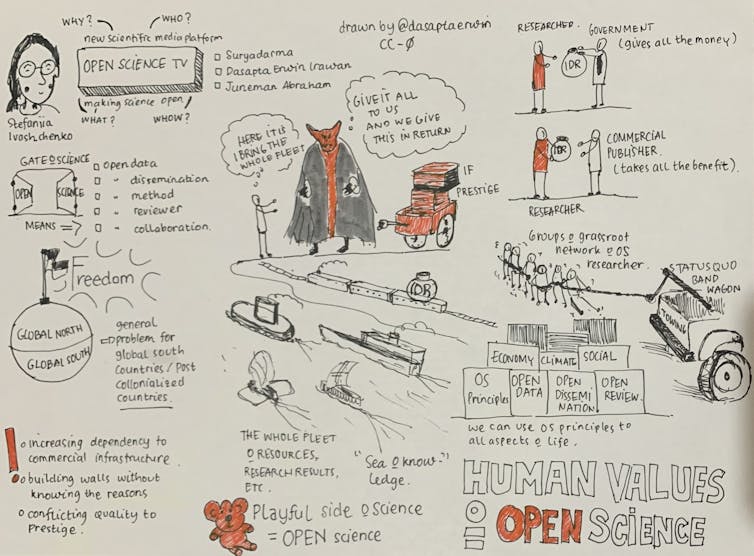 WHY?
WHO?
new scientific media platform
OPEN SCIENCE TV
making science open
WHAT?
WHOW?
Stefaniia
Ivashchenko
Suryadarma
Dasapta Erwin Irawan
Juneman Abraham
drawn by @dasaptaerwin
CC-0
GATE O SCIENCE
OPEN
SCIENCE
MEANS => ?
open data
" dissemination
" method
" reviewer
" collaboration.
Freedom
GLOBAL NORTH
GLOBAL SOUTH
general
problem for
global south
countries / Post
collonialized
countries.
increasing dependency to
commercial infrastructure.
building walls without
knowing the reasons
conflicting quality to
Prestige.
HERE IT IS
I BRING THE
WHOLE FLEET
GIVE IT ALL
TO US
AND WE GIVE
THIS IN RETURN
IF
PRESTIGE
IDR
THE WHOLE FLEET
O RESOURCES,
RESEARCH RESULTS,
ETC.
"Sea o know-
ledge.
Playful side o science
= OPEN science
RESEARCHER.
GOVERNMENT
(gives all the money)
IDR
COMMERCIAL
PUBLISHER.
(takes all the benefit).
IDR
RESEARCHER
Groups o grassroot
network o OS
researcher.
STATUS QUO
BAND
WAGON
TOWING
ECONOMY
CLIMATE
SOCIAL
OS
Principles
OPEN
DATA
OPEN
DISSEMI
NATION
OPEN
REVIEW.
we can use OS principles to
all aspects o life.
HUMAN VALUES
IO OPEN SCIENCE